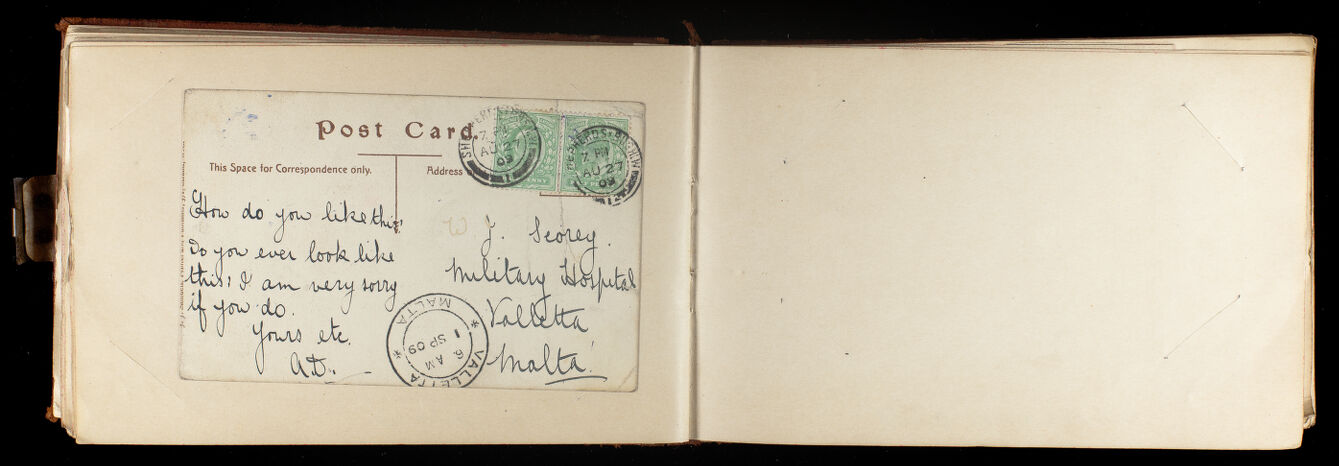 Post Card.
This Space for Correspondence only.
Address
How do you like this?
Do you ever look like
this? I am very sorry
if you do.
Yours etc.
A.D.
J. Scorey.
Military Hospital
Valletta
Malta.
SHEPHERDS BUSH.W
7 PM
AU 27
09
SHEPHERDS BUSH.W
7 PM
AU 27
09
VALLETTA
6 AM
1 SP 09
MALTA